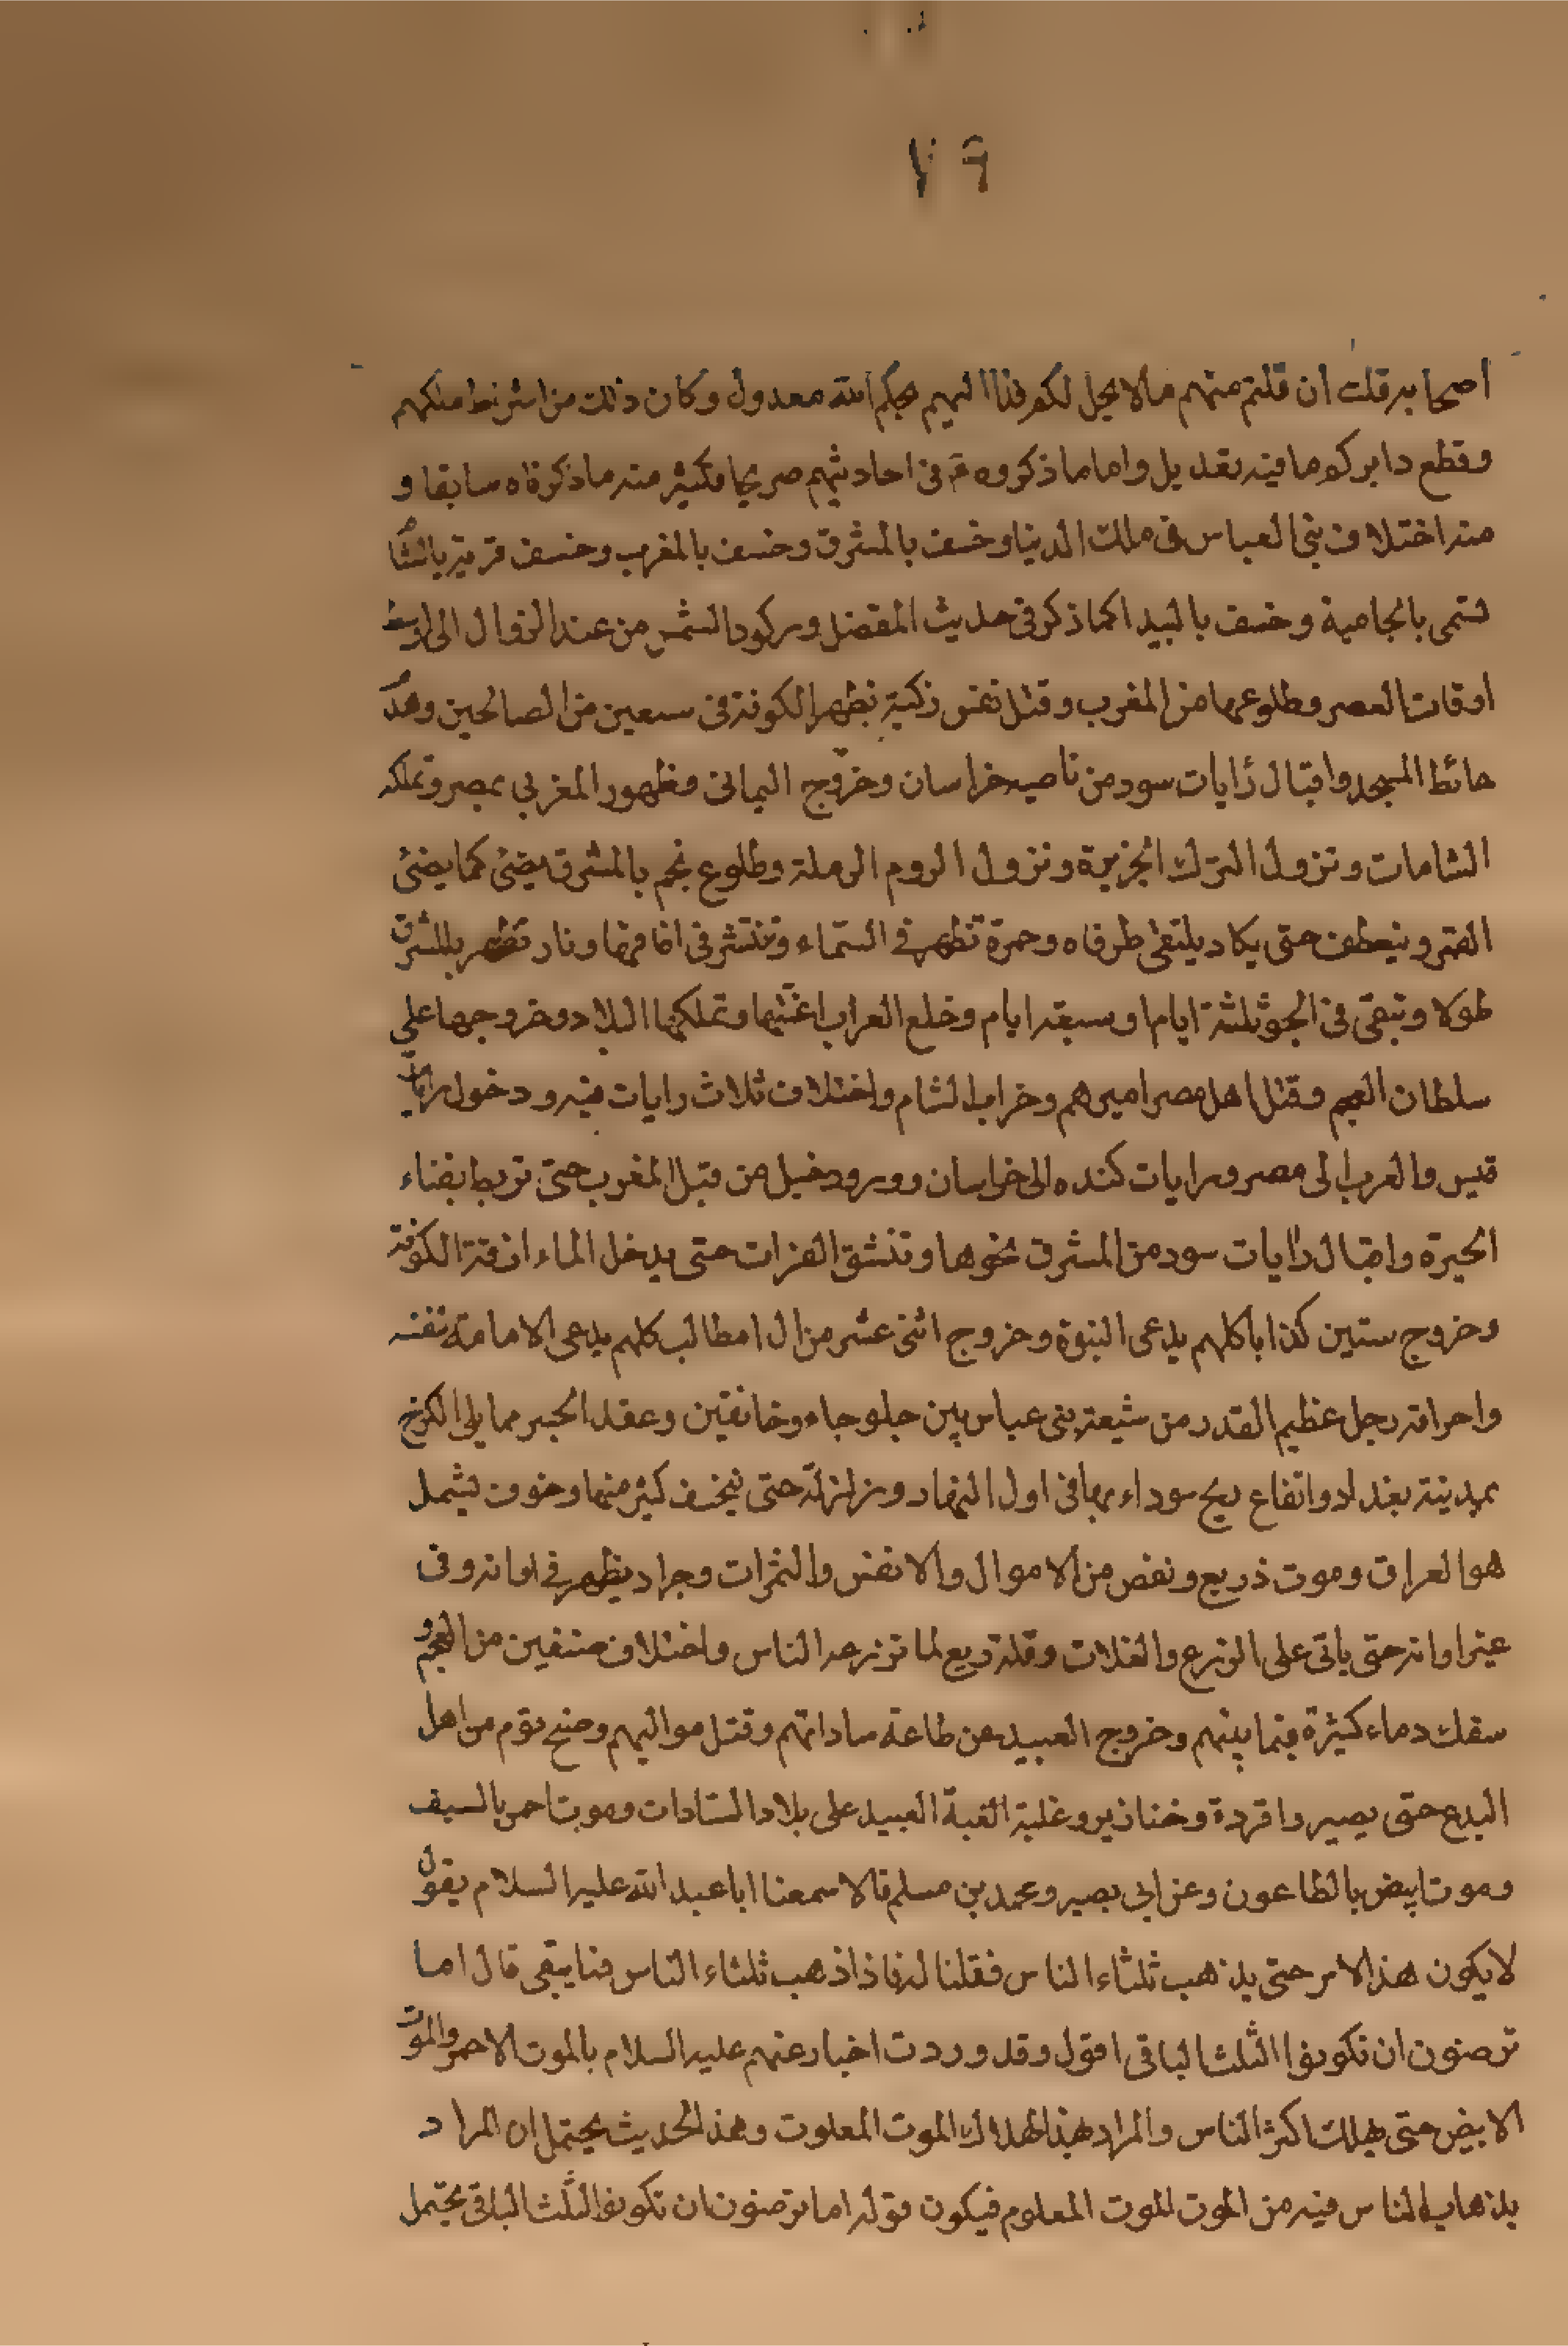 ٧٩
اصحابه قلت ان قلتم منهم مالا يحل لكم فذا اليهم بحكم الله معدول وكان ذلك من اشراط ملكهم
وقطع دابركم وما فيه تعديل واما ما ذكروه ع في احاديثهم صريحا فكثير منه ما ذكرناه سابقا و
منه اختلاف بني العباس في ملك الدنيا وخسف بالمشرق وخسف بالمغرب وخسف قرية بالشام
تسمى بالجابية وخسف بالبيداء كما ذكر في حديث المفضل وركود الشمس من عند الزوال الى اوسط
اوقات العصر وطلوعها من المغرب وقتل نفس زكية بظهر الكوفة في سبعين من الصالحين وهدم
حائط المسجد واقبال رايات سود من ناحيه خراسان وخروج اليماني وظهور المغربي بمصر وتملكه
الشامات ونزول الترك الجزيرة ونزول الروم الرملة وطلوع نجم بالمشرق يضئ كما يضئ
القمر وينعطف حتى يكاد يلتقي طرفاه وحمرة تظهر في السماء وتنتشر في افاقها ونار تظهر بالمشرق
طولا وتبقى في الجو ثلثة ايام او سبعة ايام وخلع العراب اعنتها وتملكها البلاد وخروجها على
سلطان العجم وقتل اهل مصر اميرهم وخراب الشام واختلاف ثلاث رايات فيه ودخول رايات
قيس والعرب الى مصر ورايات كنده الى خراسان وورود خيل من قبل المغرب حتى تربط بفناء
الحيرة واقبال رايات سود من المشرق نحوها وتنشق الفرات حتى يدخل الماء ازقة الكوفة
وخروج ستين كذابا كلهم يدعى النبوة وخروج اثنى عشر من ال ابيطالب كلهم يدعى الامامة لنفسه
واحراق رجل عظيم القدر من شيعة بني عباس بين جلوجاء وخانقين وعقد الجسر مما يلى الكرخ
بمدينة بغداد وارتفاع ريح سوداء بها في اول النهار وزلزلة حتى ينخسف كثير منها وخوف يشمل
هو العراق وموت ذريع ونقص من الاموال والانفس والثمرات وجراد يظهر في اوانه وفى
غير اوانه حتى ياتى على الزرع والغلات وقلة ريع لما تزرعه الناس واختلاف صنفين من العجم و
سفك دماء كثيرة فيما بينهم وخروج العبيد عن طاعة ساداتهم وقتل مواليهم ومسخ قوم من اهل
البدع حتى يصيروا قردة وخنازير وغلبة العبيد على بلاد السادات وموت احمر بالسيف
وموت ابيض بالطاعون وعن ابي بصير ومحمد بن مسلم قالا سمعنا ابا عبد الله عليه السلام يقول
لا يكون هذا الامر حتى يذهب ثلثاء الناس فقلنا له فاذا ذهب ثلثاء الناس فما يبقى قال اما
ترضون ان تكونوا الثلث الباقي اقول وقد وردت اخبار عنهم عليه السلام بالموت الاحمر والموت
الابيض حتى يهلك اكثر الناس والمراد بهذا الهلاك الموت المعلوت وهذ الحديث يحتمل ان المراد
بذهاب الناس فيه من الموت الموت المعلوم فيكون قوله اما ترضون ان تكونوا الثلث الباقي يحتمل